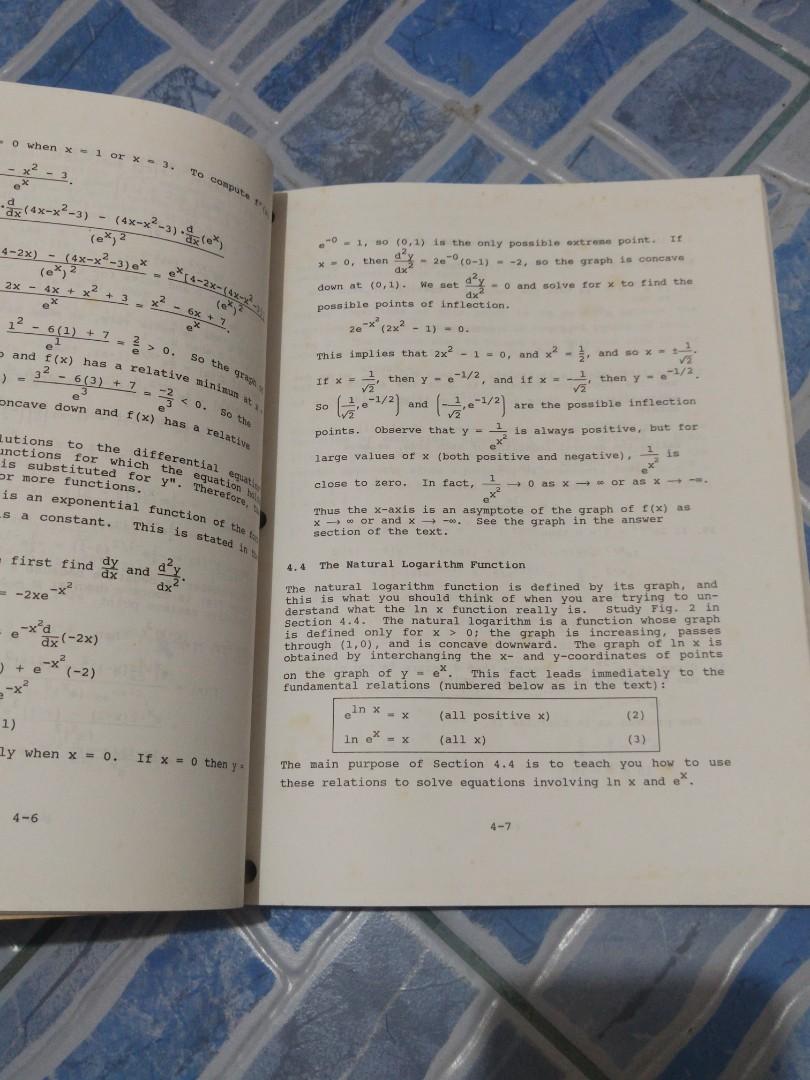 = 0 when x = 1 or x = 3. To compute f"(
- x² - 3
e^x .
· d/dx (4x-x²-3) - (4x-x²-3) · d/dx (e^x)
(e^x)²
4-2x) - (4x-x²-3)e^x = e^x[4-2x-(4x-x²-3)
(e^x)² (e^x)²
2x - 4x + x² + 3 = x² - 6x + 7
e^x e^x .
1² - 6(1) + 7 = 2/e > 0. So the graph
e^1
and f(x) has a relative minimum at
) = 3² - 6(3) + 7 = -2/e³ < 0. So the
e³
oncave down and f(x) has a relative
lutions to the differential equation
unctions for which the equation
is substituted for y". Therefore,
or more functions.
is an exponential function of the
s a constant. This is stated in
first find dy/dx and d²y/dx².
= -2xe^-x²
e^-x² d/dx (-2x)
) + e^-x² (-2)
e^-x²
1)
ly when x = 0. If x = 0 then y =
4-6
e^-0 = 1, so (0,1) is the only possible extreme point. If
x = 0, then d²y/dx² = 2e^-0 (0-1) = -2, so the graph is concave
down at (0,1). We set d²y/dx² = 0 and solve for x to find the
possible points of inflection.
2e^-x² (2x² - 1) = 0.
This implies that 2x² - 1 = 0, and x² = 1/2, and so x = ±1/√2.
If x = 1/√2, then y = e^-1/2, and if x = -1/√2, then y = e^-1/2.
So (1/√2, e^-1/2) and (-1/√2, e^-1/2) are the possible inflection
points. Observe that y = 1/e^x² is always positive, but for
large values of x (both positive and negative), 1/e^x² is
close to zero. In fact, 1/e^x² → 0 as x → ∞ or as x → -∞.
Thus the x-axis is an asymptote of the graph of f(x) as
x → ∞ or and x → -∞. See the graph in the answer
section of the text.
4.4 The Natural Logarithm Function
The natural logarithm function is defined by its graph, and
this is what you should think of when you are trying to un-
derstand what the ln x function really is. Study Fig. 2 in
Section 4.4. The natural logarithm is a function whose graph
is defined only for x > 0; the graph is increasing, passes
through (1,0), and is concave downward. The graph of ln x is
obtained by interchanging the x- and y-coordinates of points
on the graph of y = e^x. This fact leads immediately to the
fundamental relations (numbered below as in the text):
e^ln x = x (all positive x) (2)
ln e^x = x (all x) (3)
The main purpose of Section 4.4 is to teach you how to use
these relations to solve equations involving ln x and e^x.
4-7